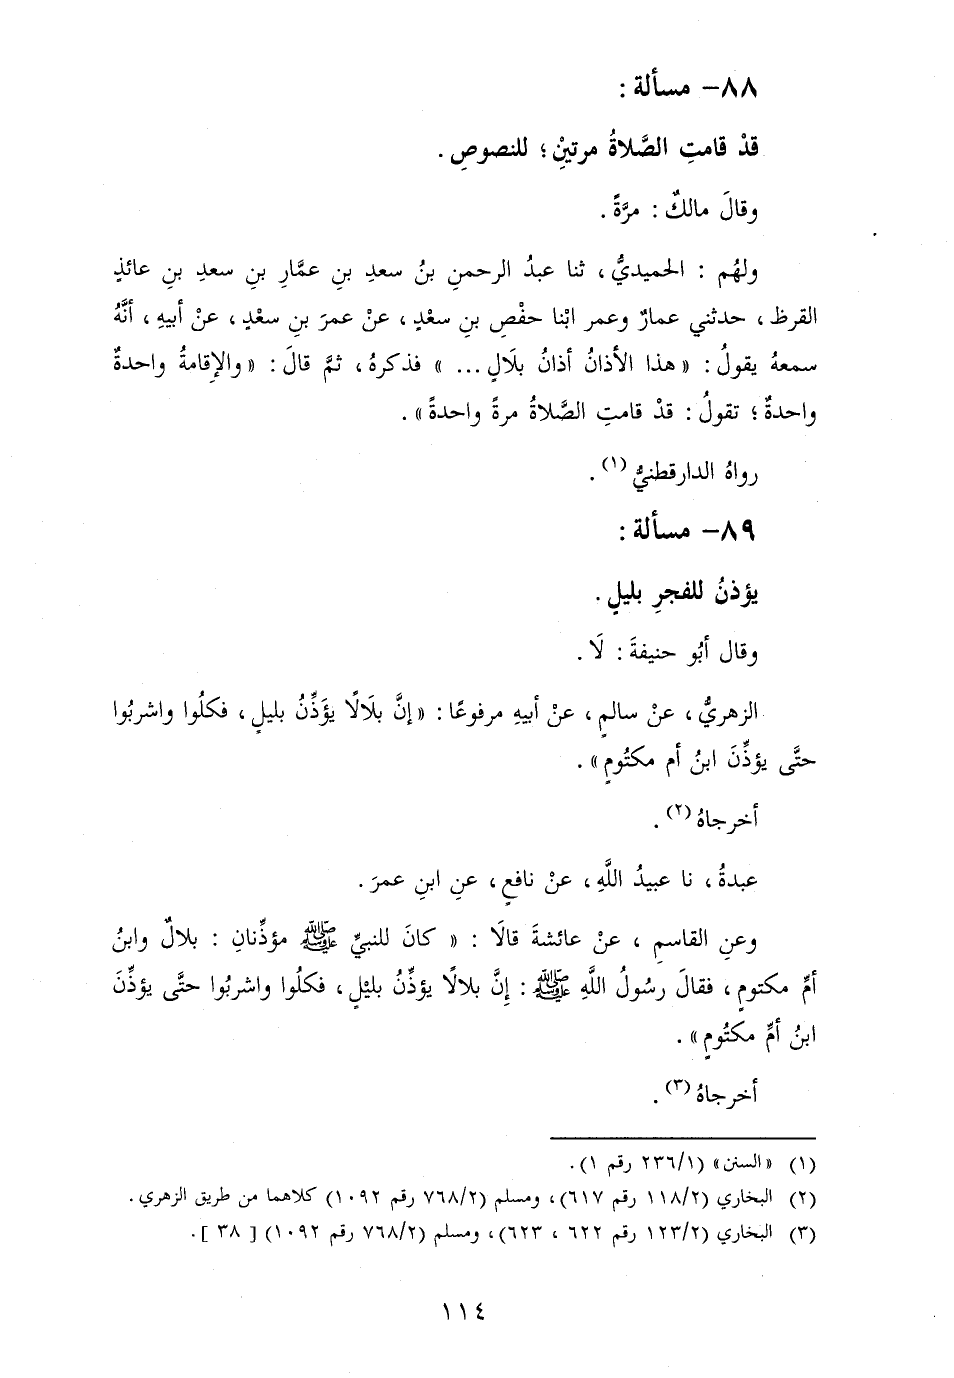 ٨٨- مسألة :
قدْ قامتِ الصَّلاةُ مرتينِ ؛ للنصوصِ .
وقالَ مالكٌ : مرَّةً .
ولهُم : الحميديُّ ، ثنا عبدُ الرحمنِ بنُ سعدِ بنِ عمَّارِ بنِ سعدِ بنِ عائذٍ
القرظ ، حدثني عمارٌ وعمر ابْنا حفْصِ بنِ سعْدٍ ، عنْ عمرَ بنِ سعْدٍ ، عنْ أبيهِ ، أنَّهُ
سمعهُ يقولُ : « هذا الأذانُ أذانُ بلَالٍ ... » فذكرهُ ، ثمَّ قالَ : « والإقامةُ واحدةٌ
واحدةٌ ؛ تقولُ : قدْ قامتِ الصَّلاةُ مرةً واحدةً » .
رواهُ الدارقطنيُّ (١) .
٨٩- مسألة :
يؤذنُ للفجرِ بليلٍ .
وقال أبُو حنيفةَ : لَا .
الزهريُّ ، عنْ سالمٍ ، عنْ أبيهِ مرفوعًا : « إنَّ بلَالًا يؤَذِّنُ بليلٍ ، فكلُوا واشربُوا
حتَّى يؤذِّنَ ابنُ أم مكتُومٍ » .
أخرجاهُ (٢) .
عبدةُ ، نا عبيدُ اللَّهِ ، عنْ نافعٍ ، عنِ ابنِ عمرَ .
وعنِ القاسمِ ، عنْ عائشةَ قالَا : « كانَ للنبيِّ ﷺ مؤذِّنانِ : بلالٌ وابنُ
أمِّ مكتومٍ ، فقالَ رسُولُ اللَّهِ ﷺ : إِنَّ بلالًا يؤذِّنُ بليْلٍ ، فكلُوا واشربُوا حتَّى يؤذِّنَ
ابنُ أمِّ مكتُومٍ » .
أخرجاهُ (٣) .
(١) « السنن » (٢٣٦/١ رقم ١) .
(٢) البخاري (١١٨/٢ رقم ٦١٧) ، ومسلم (٧٦٨/٢ رقم ١٠٩٢) كلاهما من طريق الزهري .
(٣) البخاري (١٢٣/٢ رقم ٦٢٢ ، ٦٢٣) ، ومسلم (٧٦٨/٢ رقم ١٠٩٢) [ ٣٨ ] .
١١٤